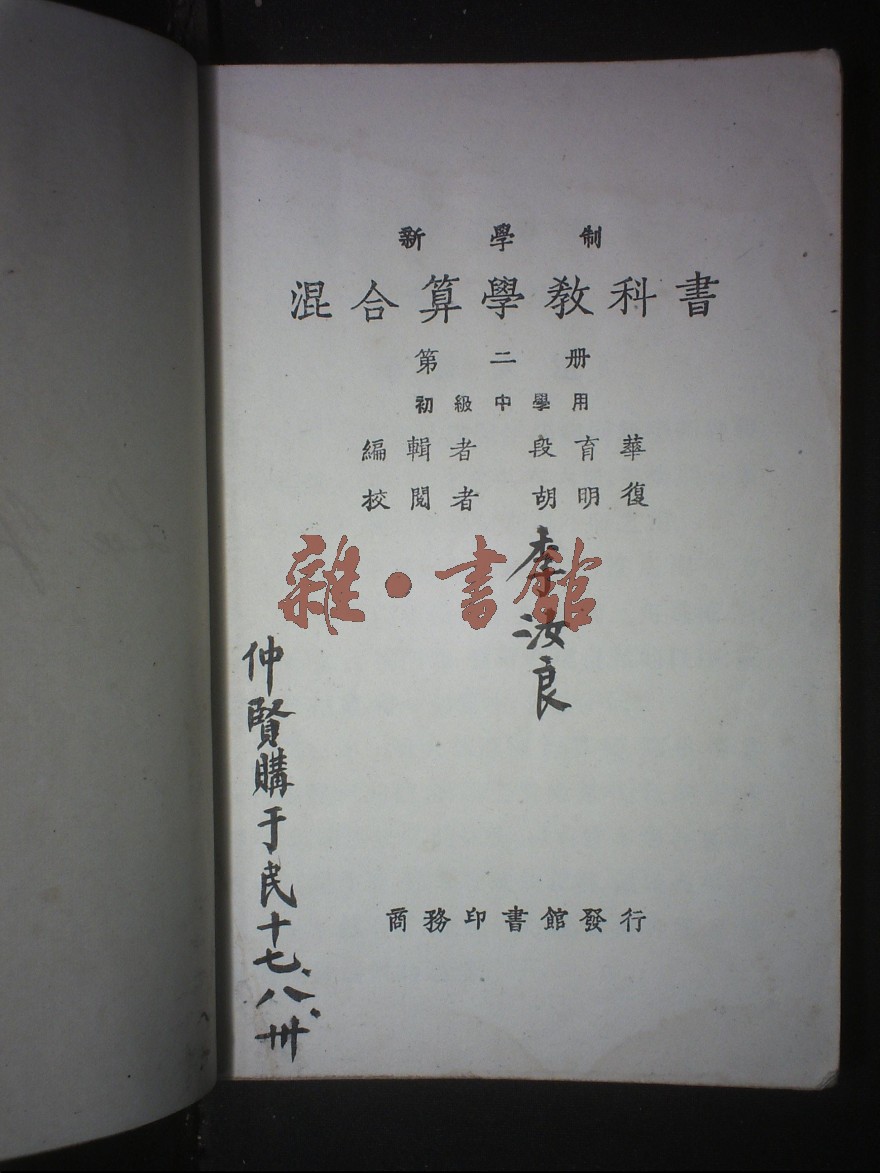 新學制
混合算學教科書
第二册
初級中學用
編輯者 段育華
校閱者 胡明復
李汝良
雜·書館
仲賢購于民十七、八、卅
商務印書館發行